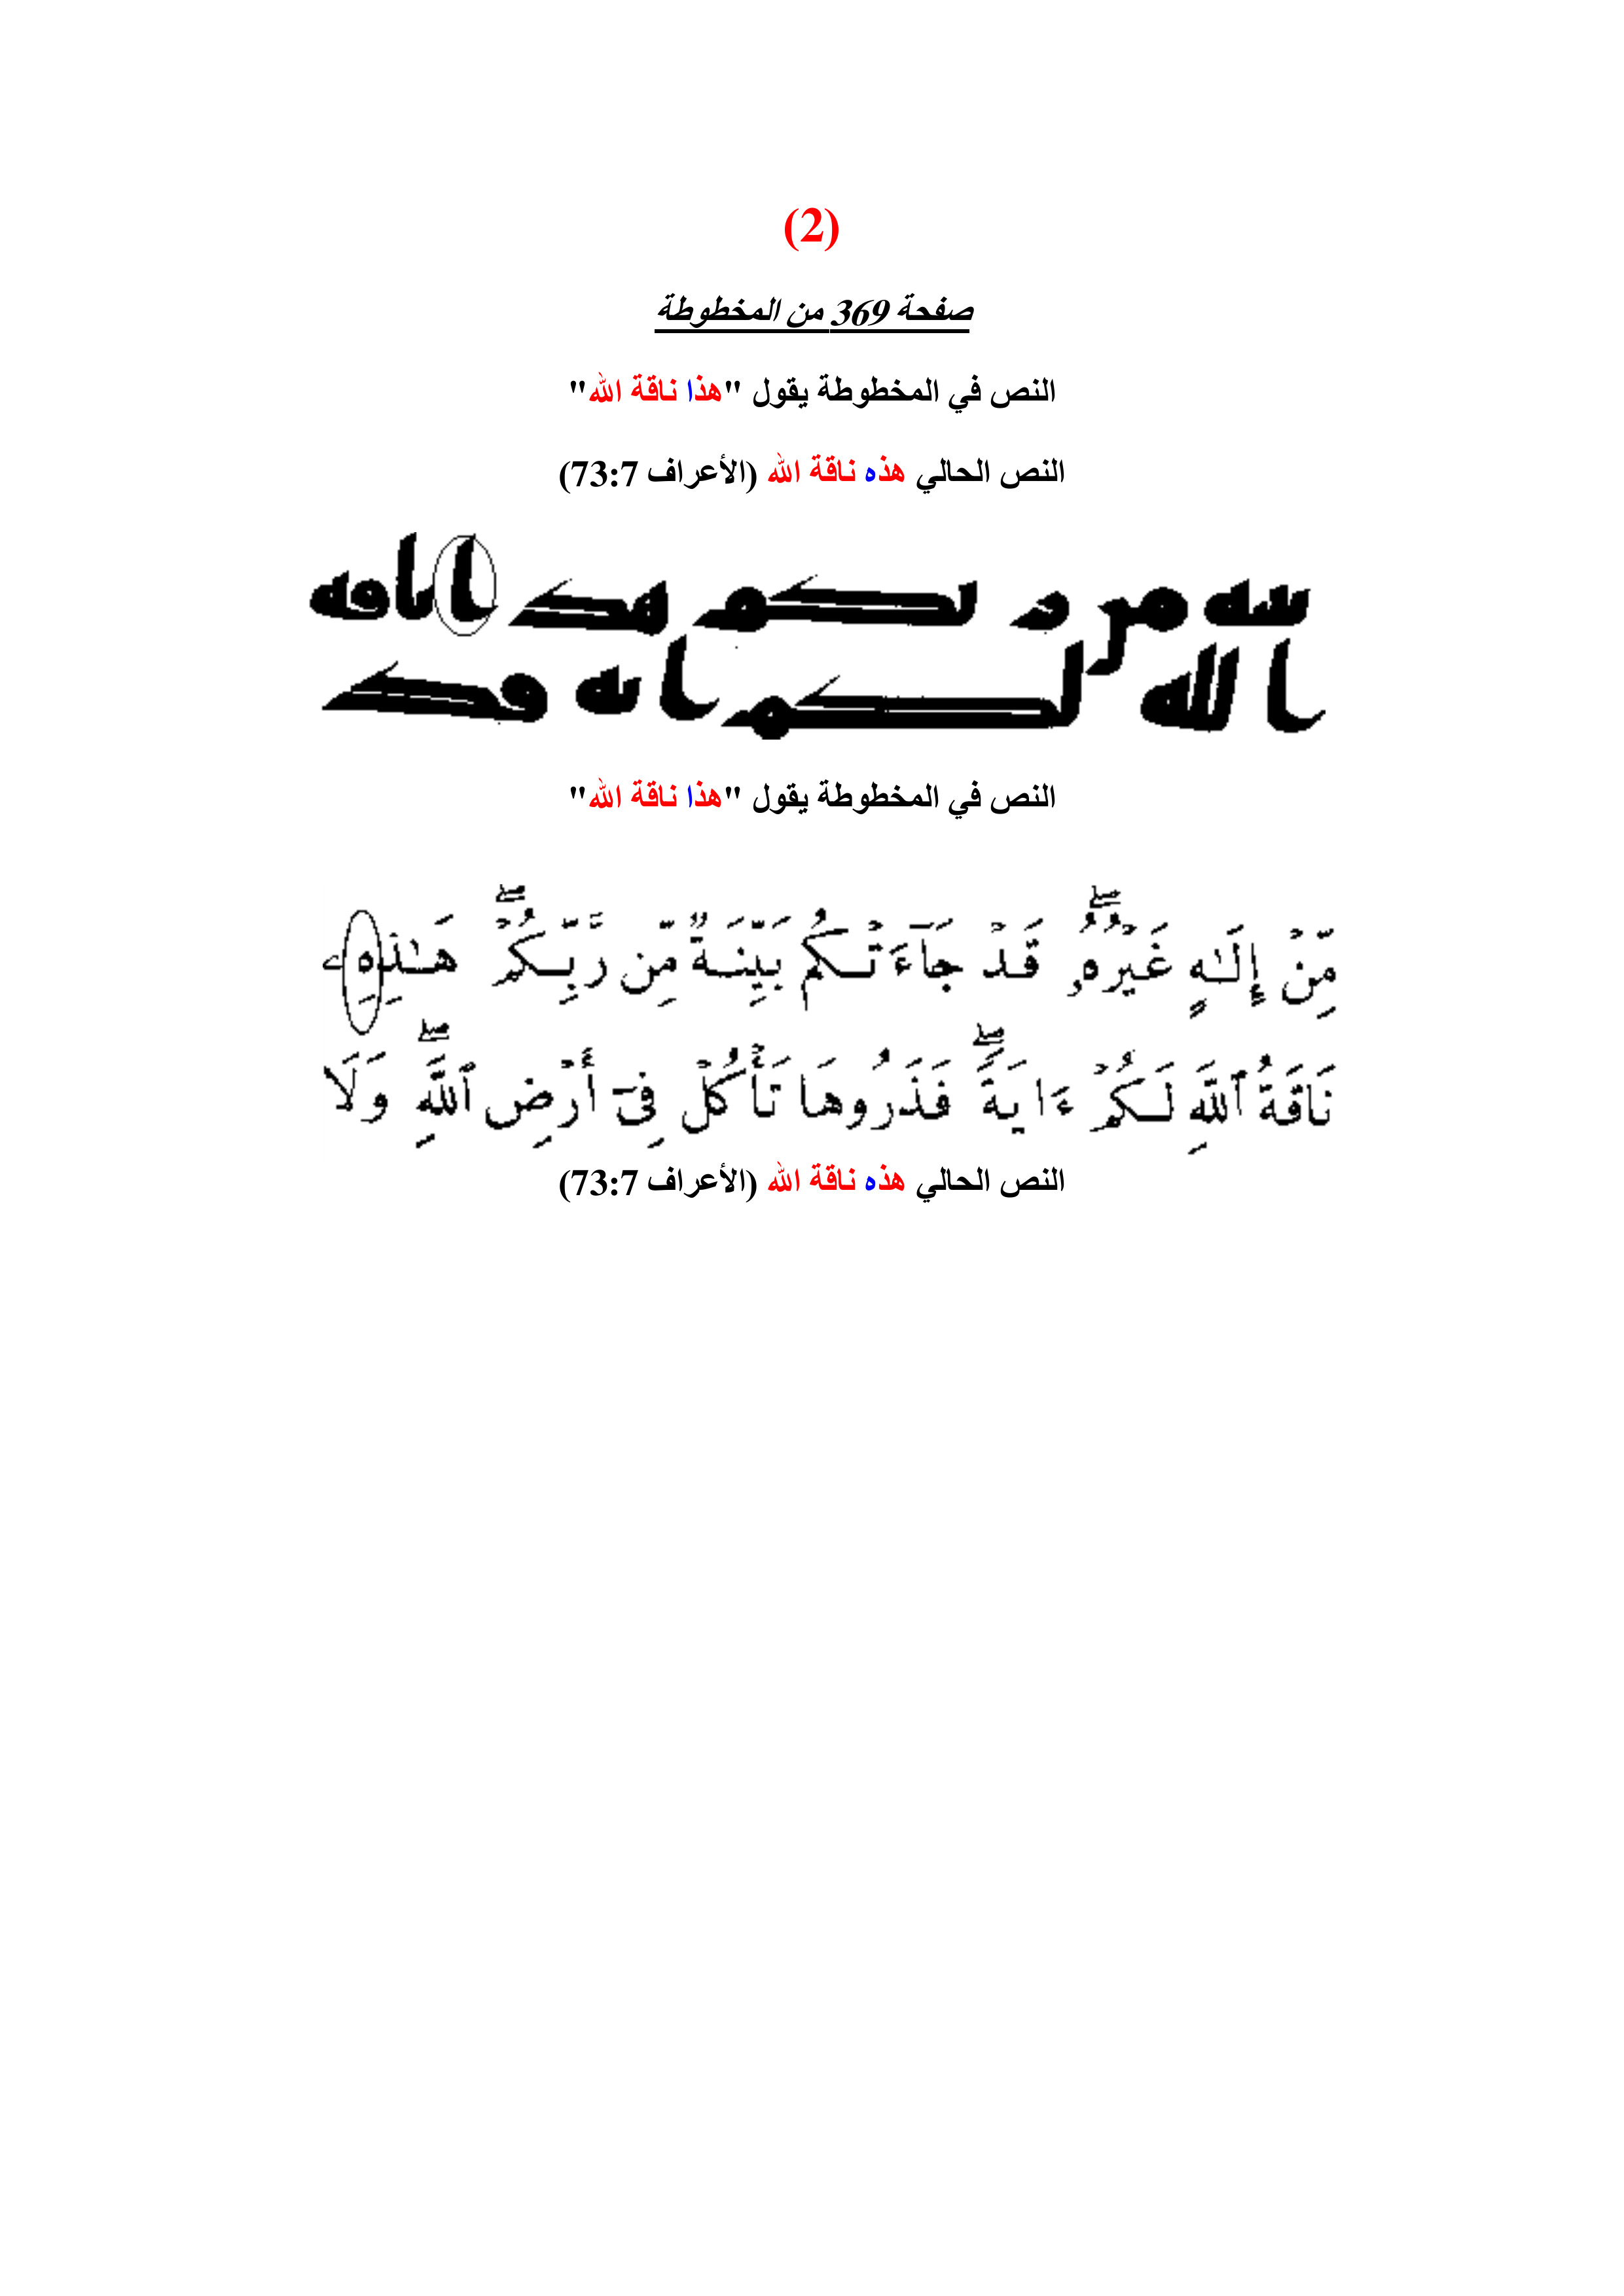 (2)
صفحة 369 من المخطوطة
النص في المخطوطة يقول "هذا ناقة الله"
النص الحالي هذه ناقة الله (الأعراف 73:7)
ىىه مں ر ىكم هدا ناقه
الله لكم ايه فد
النص في المخطوطة يقول "هذا ناقة الله"
مِّنْ إِلَـٰهٍ غَيْرُهُۥ ۖ قَدْ جَآءَتْكُم بَيِّنَةٌ مِّن رَّبِّكُمْ ۖ هَـٰذِهِۦ
نَاقَةُ ٱللَّهِ لَكُمْ ءَايَةً ۖ فَذَرُوهَا تَأْكُلْ فِىٓ أَرْضِ ٱللَّهِ ۖ وَلَا
النص الحالي هذه ناقة الله (الأعراف 73:7)